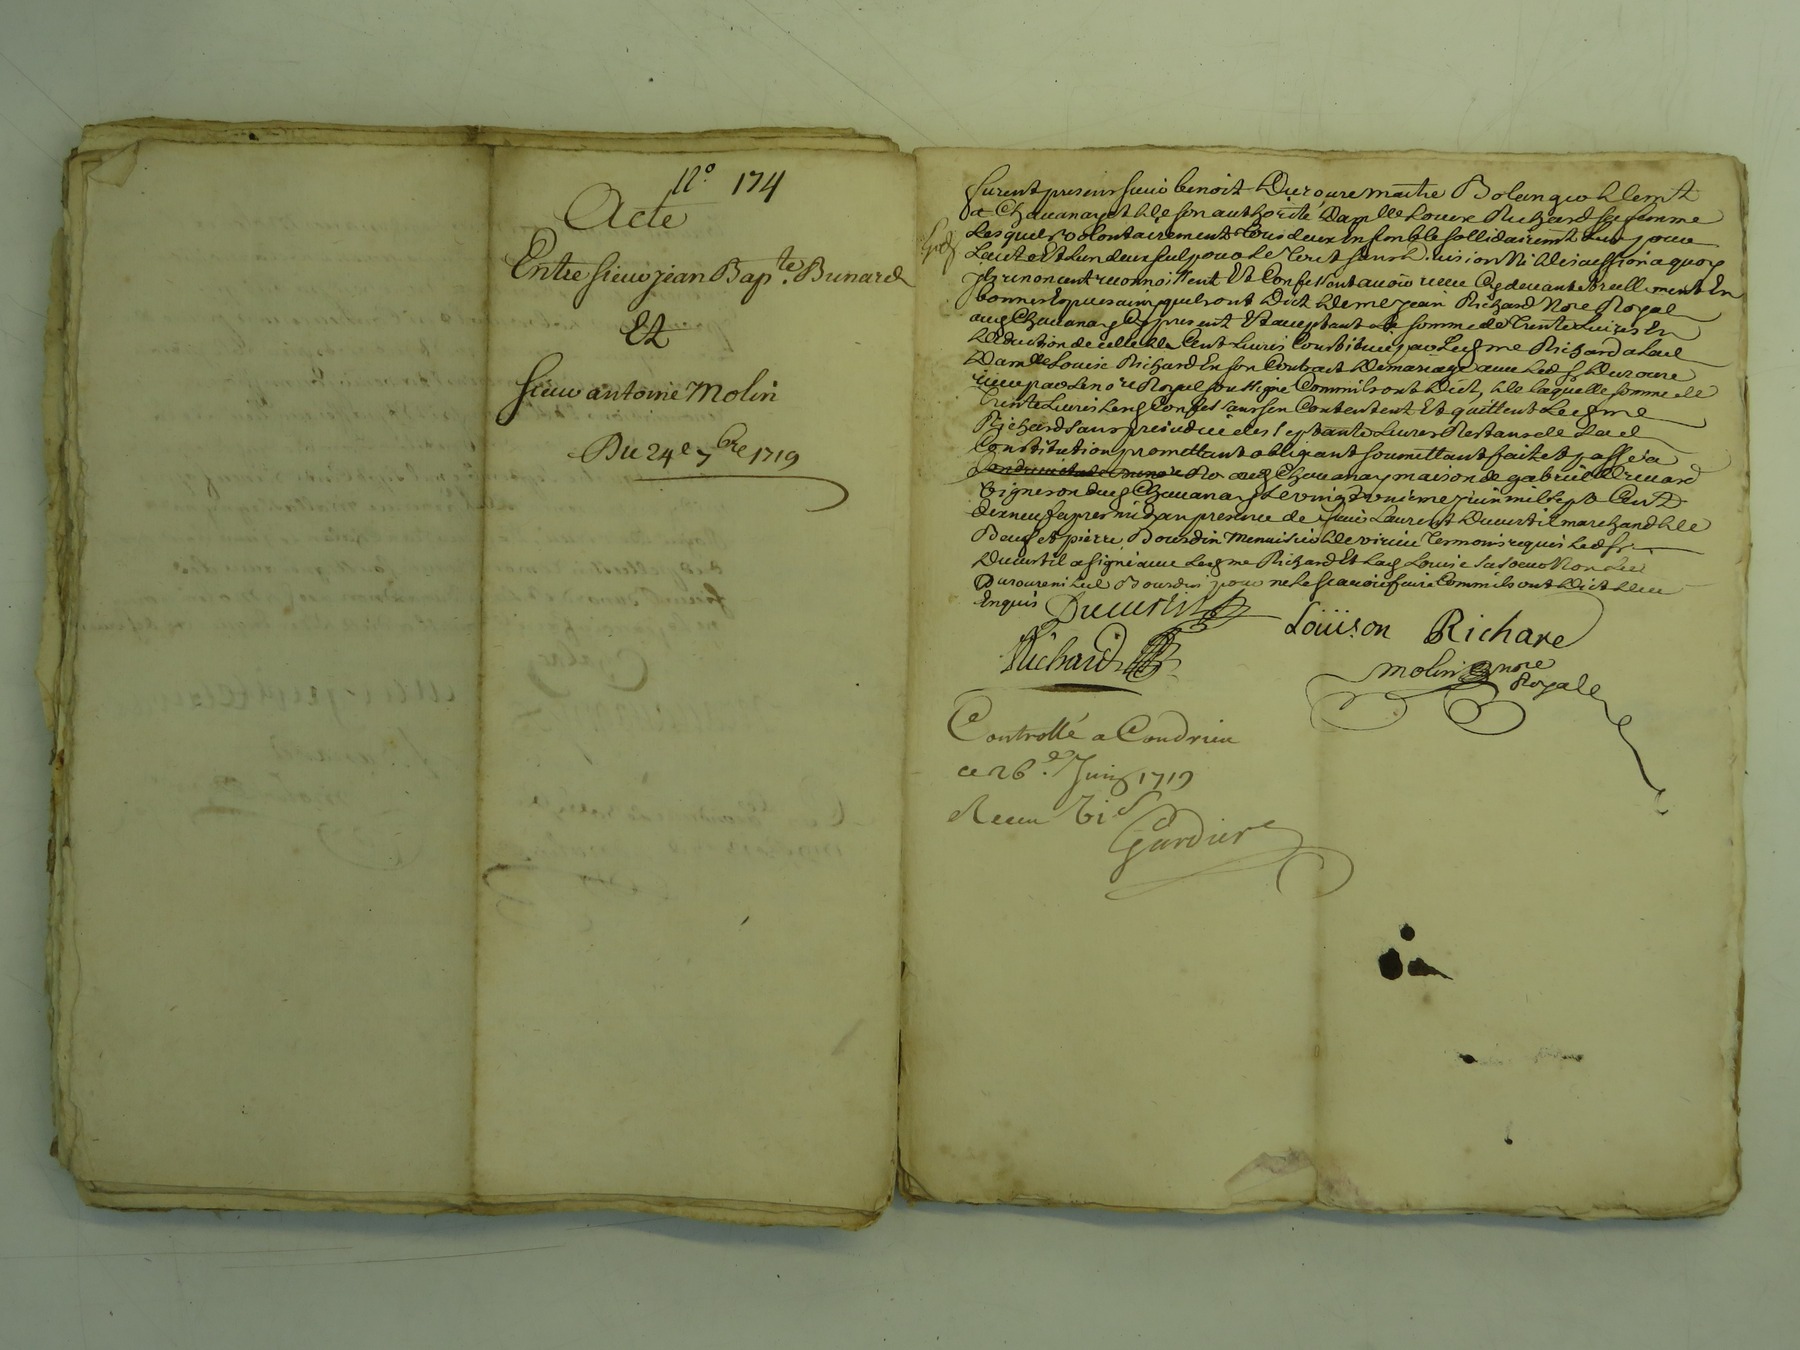 N.o 174
Acte
Entre sieur jean Bap.te Bunard
Et
sieur antoine Molin
Du 24e 7bre 1719
furent presens sieur benoit Duroure maitre Bolangeo demt
a Chavanay et de son authorité Damlle Louise Richard sa femme
Lesquels volontairement tous deux ensemble sollidairemt Lun pour
Lautre Et Lun deux seul pour le Tout sans Division Ni discussion a quoy
Ils renoncent reconnoissent Et Confessent avoir receu Cy devant et reellement En
bonnes Especes ainsy quils ont Dict de me jean Richard Nore Royal
aud Chavanay Cy present Et aceptant la somme de Trente Livres En
Deduction de celle de Cent Livres Constituée par Led me Richard a Lad
Damlle Louise Richard En son Contract de mariage avec Led sr Duroure
receu par Le nore Royal soussigné Comm ils ont Dict, de laquelle somme de
Trente Livres Les Confessans sen Contentent Et quittent Led me
Richard sans prejudice des septante Livres Restans de Lad
Constitution promettant obligeant soumettant fait et passé a
aud Chavanay maison de gabriel
vigneron dud Chavanay Le vingt unieme juin mil sept Cent
dixneuf apres midy en presence de sieur Laurent Ducurtil marchand de
Beuf et pierre Bourdin Menuisier de virieu Temoins requis Led sr
Ducurtil a signé avec Led me Richard Et Lad Louise sa soeur Non Led
Duroure ni Led Bourdin pour ne le scavoir faire Comm ils ont Dict de ce
Enquis
Ducurtil
Loüison Richare
Richard
molin nore
Royal
Controllé a Condrieu
ce 26.e Juin 1719
Receu
Gardier